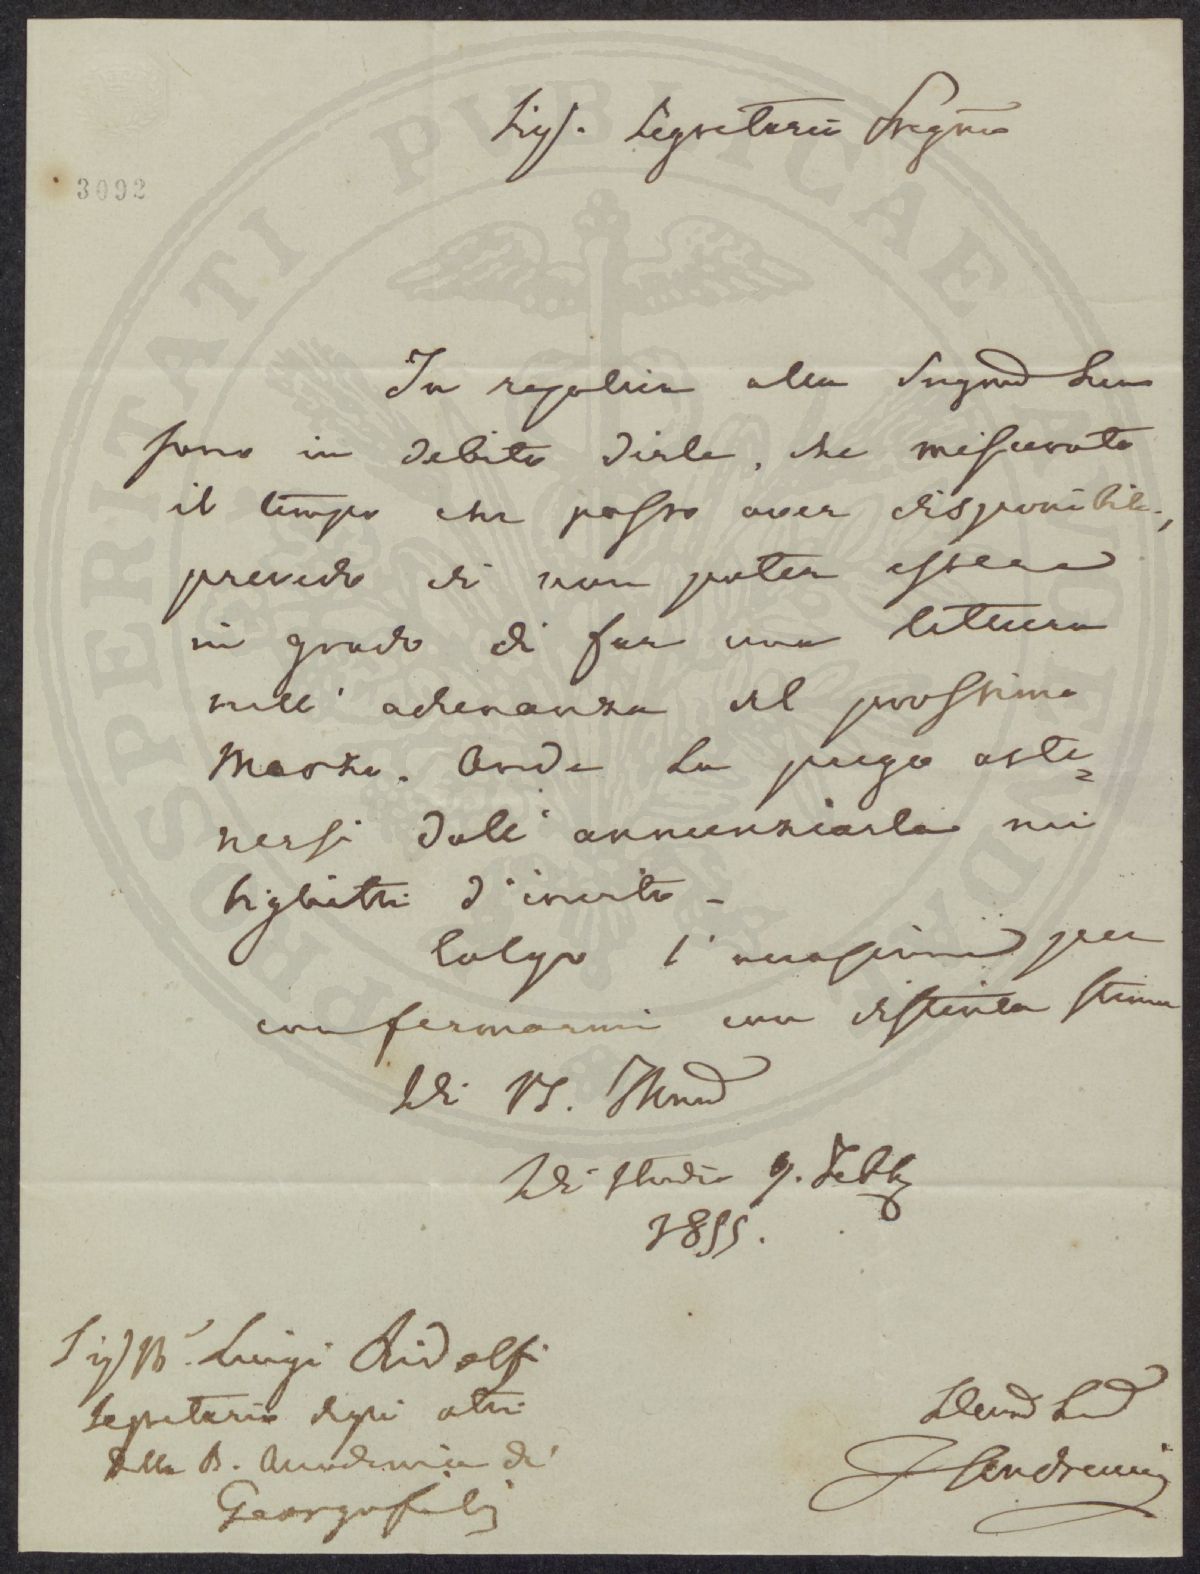 3092
Sigr. Segretario Pregmo
In replica alla Pregmª Sua
sono in debito dirle, che misurato
il tempo che posso aver disponibile,
prevedo di non poter essere
in grado di far una lettura
nell' adunanza del prossimo
Marzo. Onde La prego aste=
nersi dall' annunziarla nei
biglietti d' invito -
Colgo l' occasione per
confermarmi con distinta stima
Di VS. Illma
Di studio 9. Febb
1855.
Luigi Ridolfi
Segretario degli atti
della R. Accademia dei
Georgofili
PROSPERITATI PUBLICAE AUGENDAE